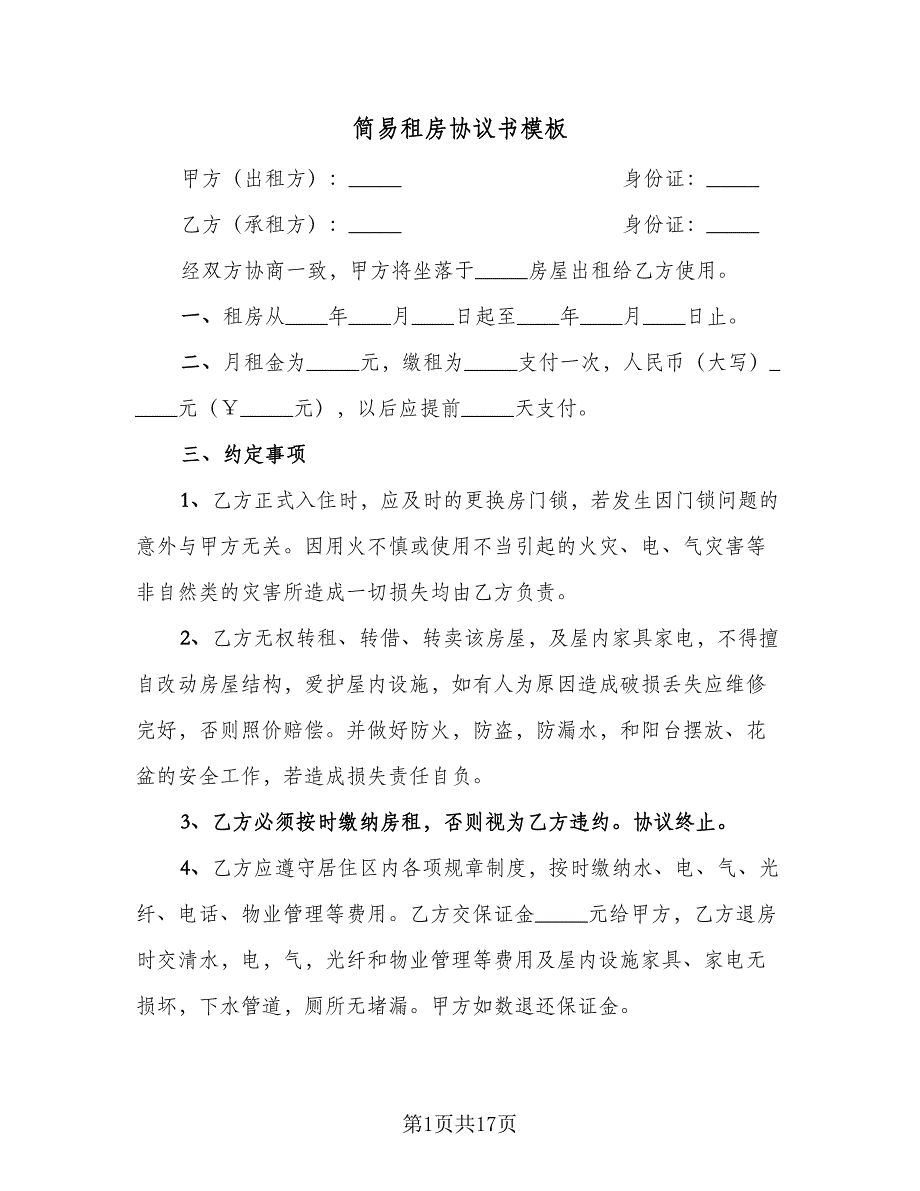 简易租房协议书模板
甲方（出租方）：_____ 身份证：_____
乙方（承租方）：_____ 身份证：_____
经双方协商一致，甲方将坐落于_____房屋出租给乙方使用。
一、租房从____年____月____日起至____年____月____日止。
二、月租金为_____元，缴租为_____支付一次，人民币（大写）_
____元（￥_____元），以后应提前_____天支付。
三、约定事项
1、乙方正式入住时，应及时的更换房门锁，若发生因门锁问题的
意外与甲方无关。因用火不慎或使用不当引起的火灾、电、气灾害等
非自然类的灾害所造成一切损失均由乙方负责。
2、乙方无权转租、转借、转卖该房屋，及屋内家具家电，不得擅
自改动房屋结构，爱护屋内设施，如有人为原因造成破损丢失应维修
完好，否则照价赔偿。并做好防火，防盗，防漏水，和阳台摆放、花
盆的安全工作，若造成损失责任自负。
3、乙方必须按时缴纳房租，否则视为乙方违约。协议终止。
4、乙方应遵守居住区内各项规章制度，按时缴纳水、电、气、光
纤、电话、物业管理等费用。乙方交保证金_____元给甲方，乙方退房
时交清水，电，气，光纤和物业管理等费用及屋内设施家具、家电无
损坏，下水管道，厕所无堵漏。甲方如数退还保证金。
第1页共17页